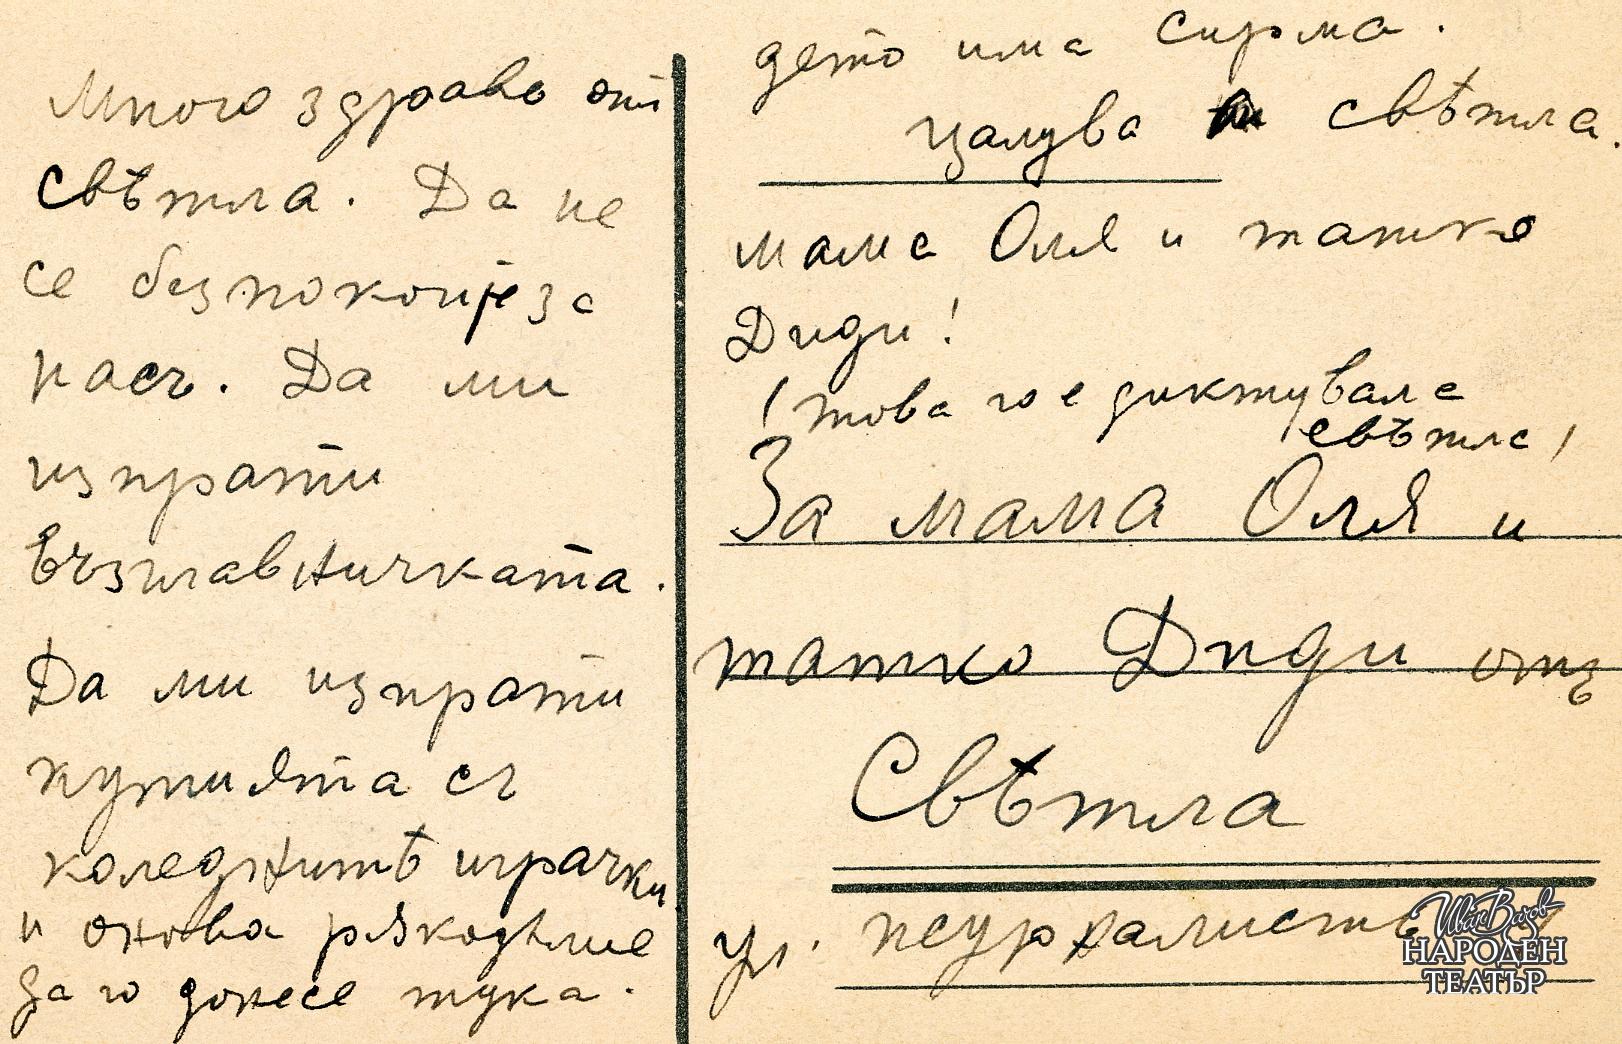 Много здраве от
Свѣтла. Да не
се безпокоиje за
насъ. Да ми
изпрати
възглавничката.
Да ми изпрати
кутията съ
коледнитѣ играчки
и онова рѫкодѣлие
да го донесе тука.
дето има сирма.
Цалува ти Свѣтла.
мама Оля и татко
Диди!
(това го е диктувала
Свѣтла)
За мама Оля и
татко Диди отъ
Свѣтла
ул.
Ив. Вазов
НАРОДЕН
ТЕАТЪР